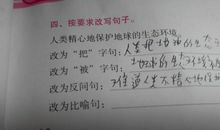 四、按要求改写句子。
人类精心地保护地球的生态环境。
改为“把”字句：人类把地球的生态
改为“被”字句：地球的生态环境
改为反问句：难道人类不精心保
改为比喻句：